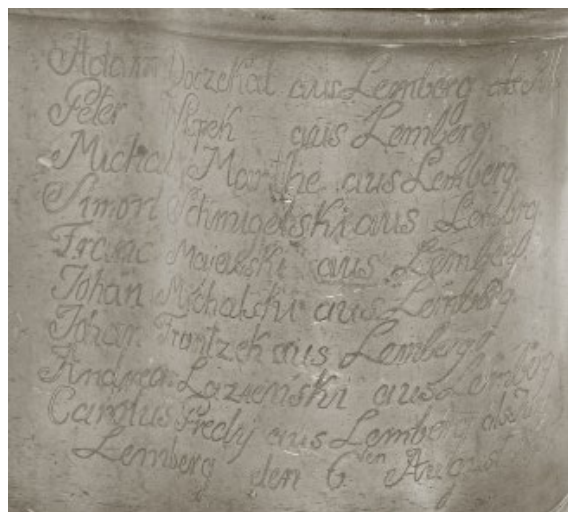 Adam Doczekal aus Lemberg als
Peter aus Lemberg
Michal Marthe aus Lemberg
Simon Schmigelski aus Lembrg
Franc Maiewski aus Lemberg
Johan Michalski aus Lemberg
Johan Frontzek aus Lemberg
Andreas Lazienski aus Lemberg
Carolus Fredij aus Lemberg als
Lemberg den 6ten August